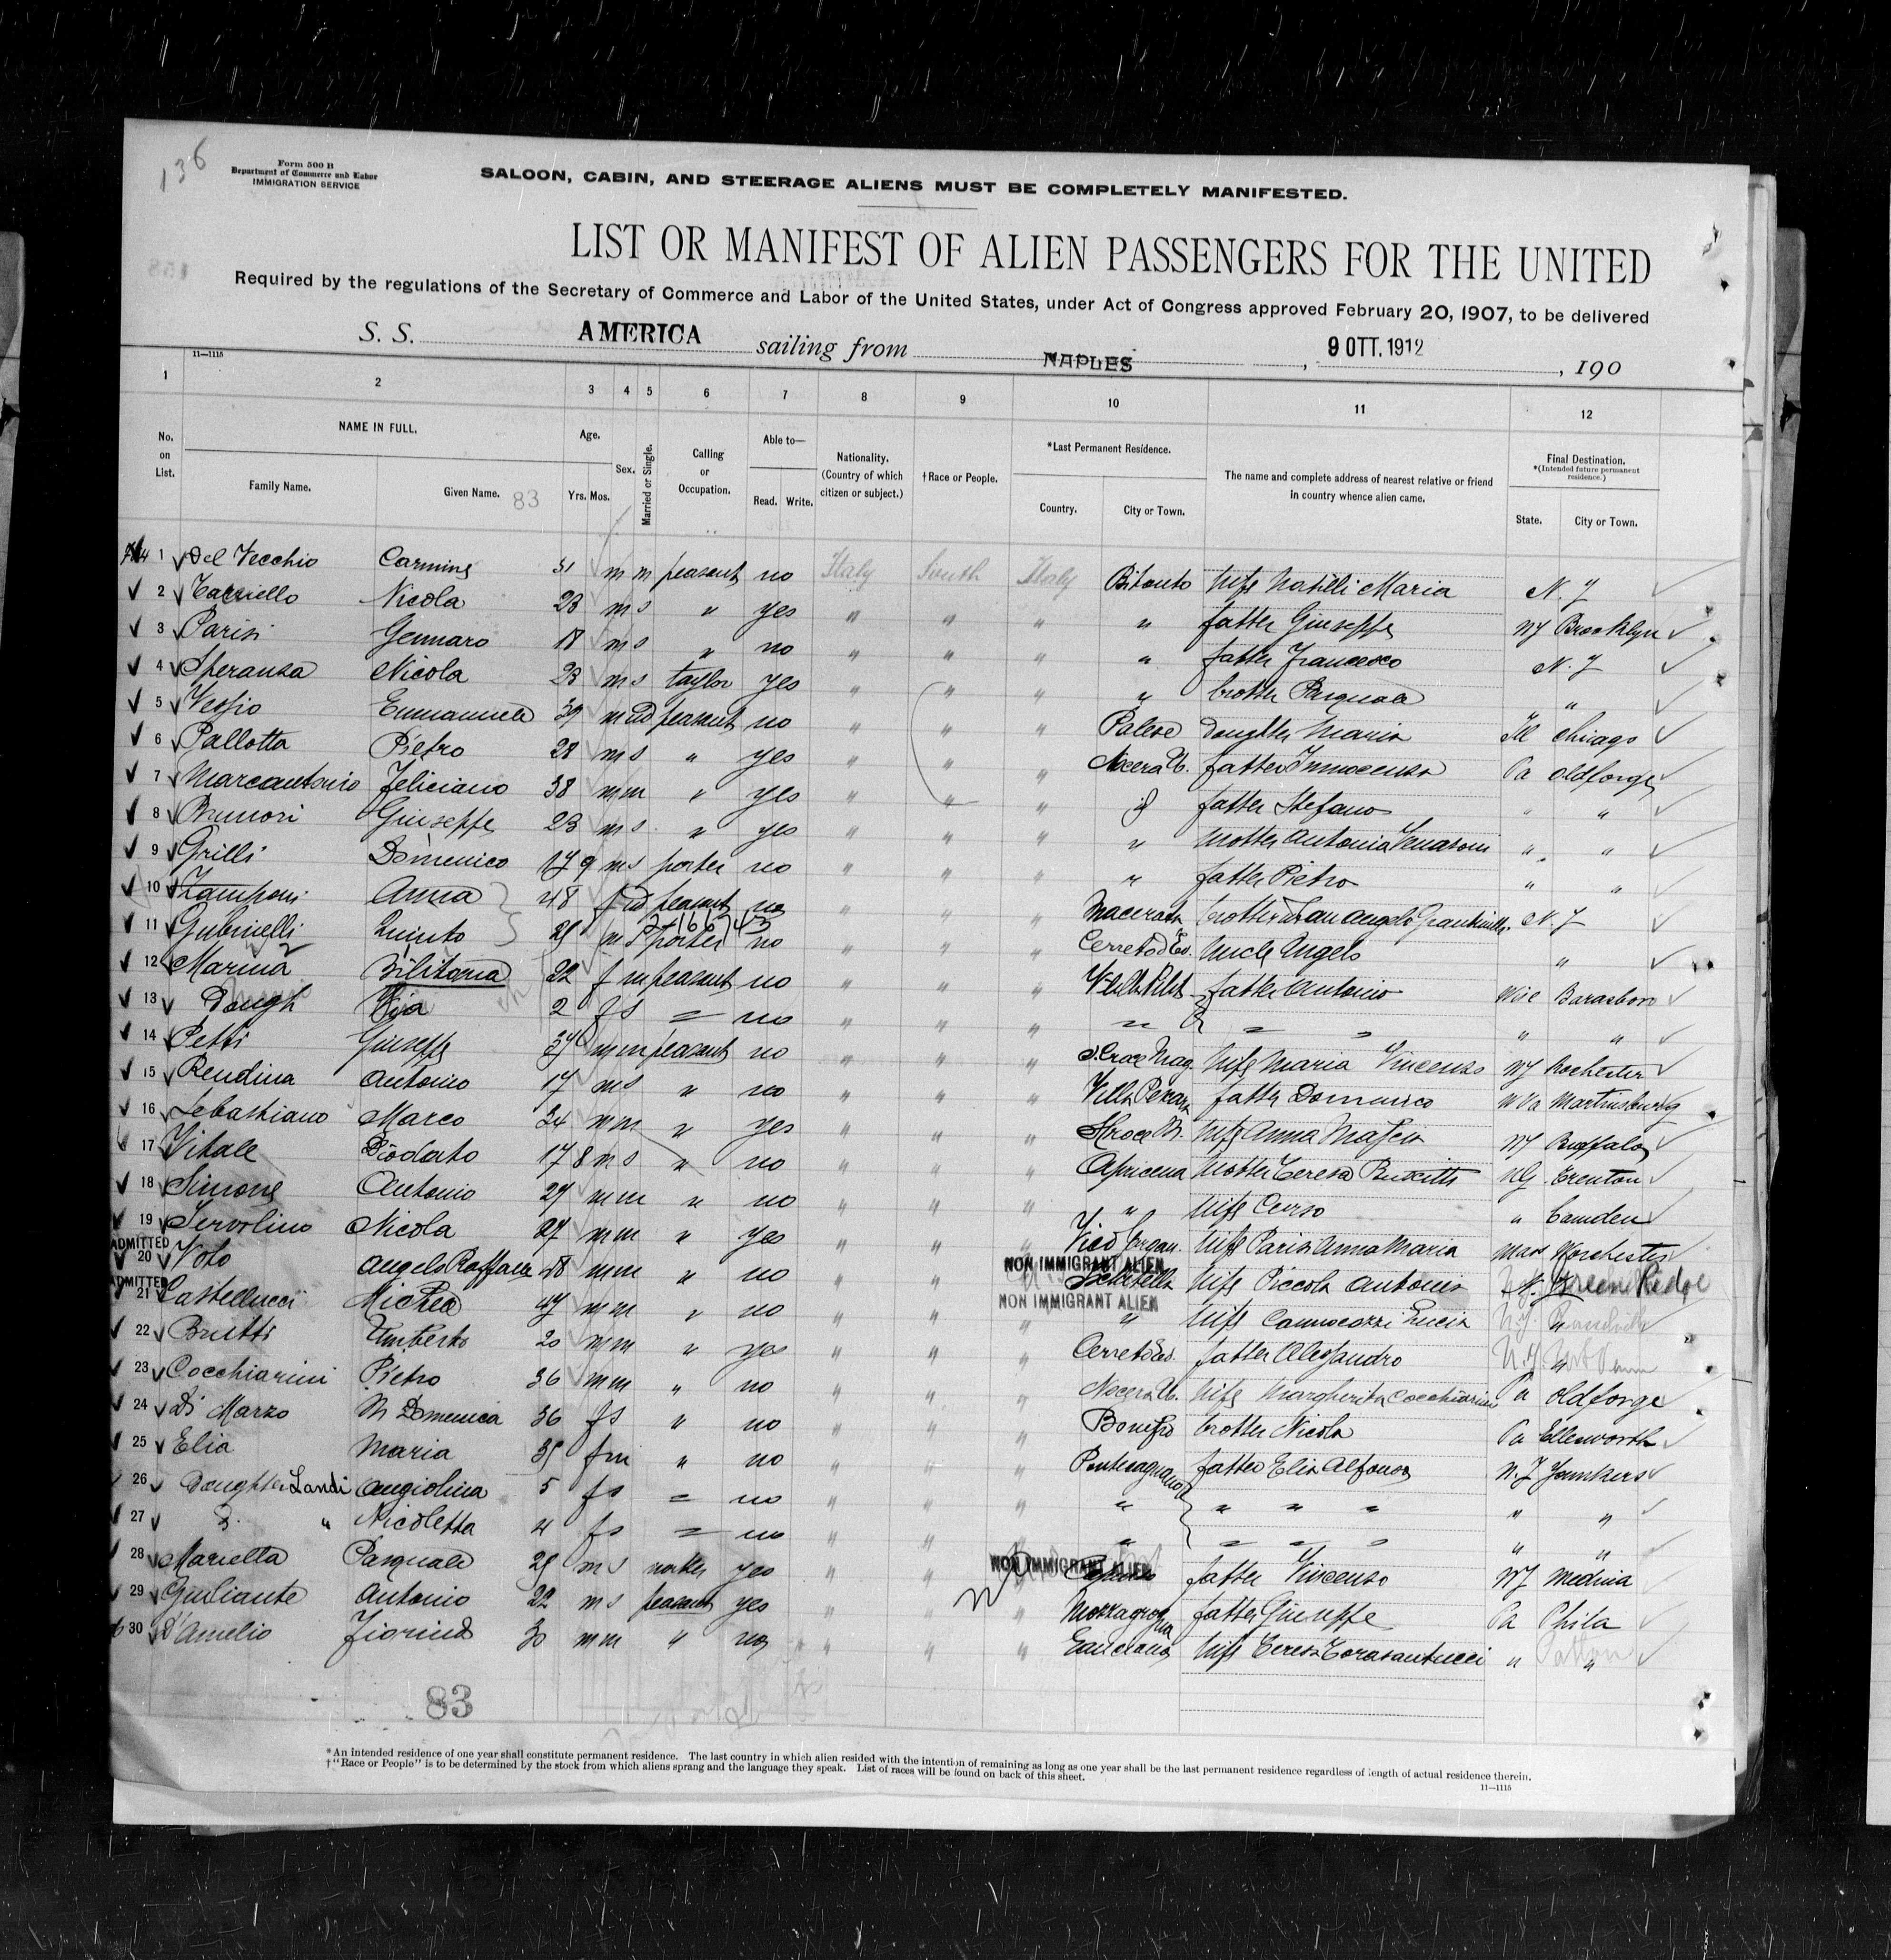 136
Form 500 B
Department of Commerce and Labor
IMMIGRATION SERVICE
SALOON, CABIN, AND STEERAGE ALIENS MUST BE COMPLETELY MANIFESTED.
LIST OR MANIFEST OF ALIEN PASSENGERS FOR THE UNITED
Required by the regulations of the Secretary of Commerce and Labor of the United States, under Act of Congress approved February 20, 1907, to be delivered
S. S. AMERICA sailing from NAPLES, 9 OTT. 1912, 190
11—1115
1 2 3 4 5 6 7 8 9 10 11 12
No. on List. NAME IN FULL. Family Name. Given Name. 83 Age. Yrs. Mos. Sex. Married or Single. Calling or Occupation. Able to— Read. Write. Nationality. (Country of which citizen or subject.) †Race or People. *Last Permanent Residence. Country. City or Town. The name and complete address of nearest relative or friend in country whence alien came. Final Destination. *(Intended future permanent residence.) State. City or Town.
1 Del Vecchio Carmine 31 m m peasant no Italy South Italy Bitonto wife Natilli Maria N. Y
2 Nicola 23 m s " yes " " " " father Giuseppe NY Brooklyn
3 Parisi Gennaro 18 m s " no " " " " father Francesco N. Y
4 Speranza Nicola 23 m s taylor yes " " " " brother Pasquale "
5 Emmanuele 39 m wd peasant no " " " Palese daughter Maria Ill Chicago
6 Pallotta Pietro 28 m s " yes " " " Nocera U. father Innocenzo Pa oldforge
7 Marcantonio Feliciano 38 m m " yes " " " id father Stefano " "
8 Brunori Giuseppe 23 m s " yes " " " " mother Antonia " "
9 Grilli Domenico 17 9 m s porter no " " " " father Pietro " "
10 Zamponi Anna 48 f wd peasant no " " " Macerata brother N. Y
11 Gubinelli Quinto m s porter no " " " Cerreto d'Es. uncle Angelo "
12 Marina 22 f m peasant no " " " father Antonio Wisc Baraboo
13 Daugh 2 f s = no " " " " = = " "
14 Petti Giuseppe 37 m m peasant no " " " S. Croce Mag. wife Maria Vincenzo NY Rochester
15 Rendina Antonio 17 m s " no " " " Villa father Domenico W Va Martinsburg
16 Sebastiano Marco 24 m m " yes " " " wife Anna NY Buffalo
17 Vitale Diodato 17 8 m s " no " " " Apricena mother Teresa NG Trenton
18 Simone Antonio 27 m m " no " " " " wife " Camden
19 Servolino Nicola 27 m m " yes " " " Vico Gargan. wife Parisi Anna Maria Mass Worchester
ADMITTED
20 Voto Angelo Raffaele 48 m m " no " " NON IMMIGRANT ALIEN wife Piccola Antonia N. Y Green Ridge
ADMITTED
21 Castellucci Michele 47 m m " no " " NON IMMIGRANT ALIEN " wife Lucia N.Y. "
22 Brutti Umberto 20 m m " yes " " " Cerreto Es. father Alessandro N.Y. "
23 Cocchiarini Pietro 36 m m " no " " " Nocera U. wife Margherita Cocchiarini Pa oldforge
24 Di Marzo M Domenica 36 f s " no " " " Bonefro brother Nicola Pa Ellsworth
25 Elia Maria 35 f m " no " " " Pontecagnano father Elia Alfonso N. Y Yonkers
26 Daughter Landi Angiolina 5 f s = no " " " " " " " " "
27 " Nicoletta 4 f s = no " " " " = = = " "
28 Marietta Pasquale m s yes " " NON IMMIGRANT ALIEN father Vincenzo NY Medina
29 Giuliante Antonio 22 m s peasant yes " " " Mozzagrogna father Giuseppe Pa Phila
30 d'Amelio 30 m m " no " " " Lanciano wife Teresa " "
83
*An intended residence of one year shall constitute permanent residence. The last country in which alien resided with the intention of remaining as long as one year shall be the last permanent residence regardless of length of actual residence therein.
†"Race or People" is to be determined by the stock from which aliens sprang and the language they speak. List of races will be found on back of this sheet.
11—1115